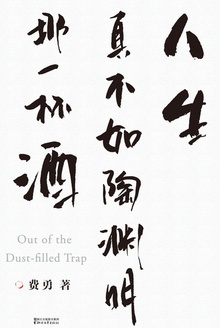 人生
真不如陶渊明
那一杯酒
Out of the
Dust-filled Trap
费勇 著